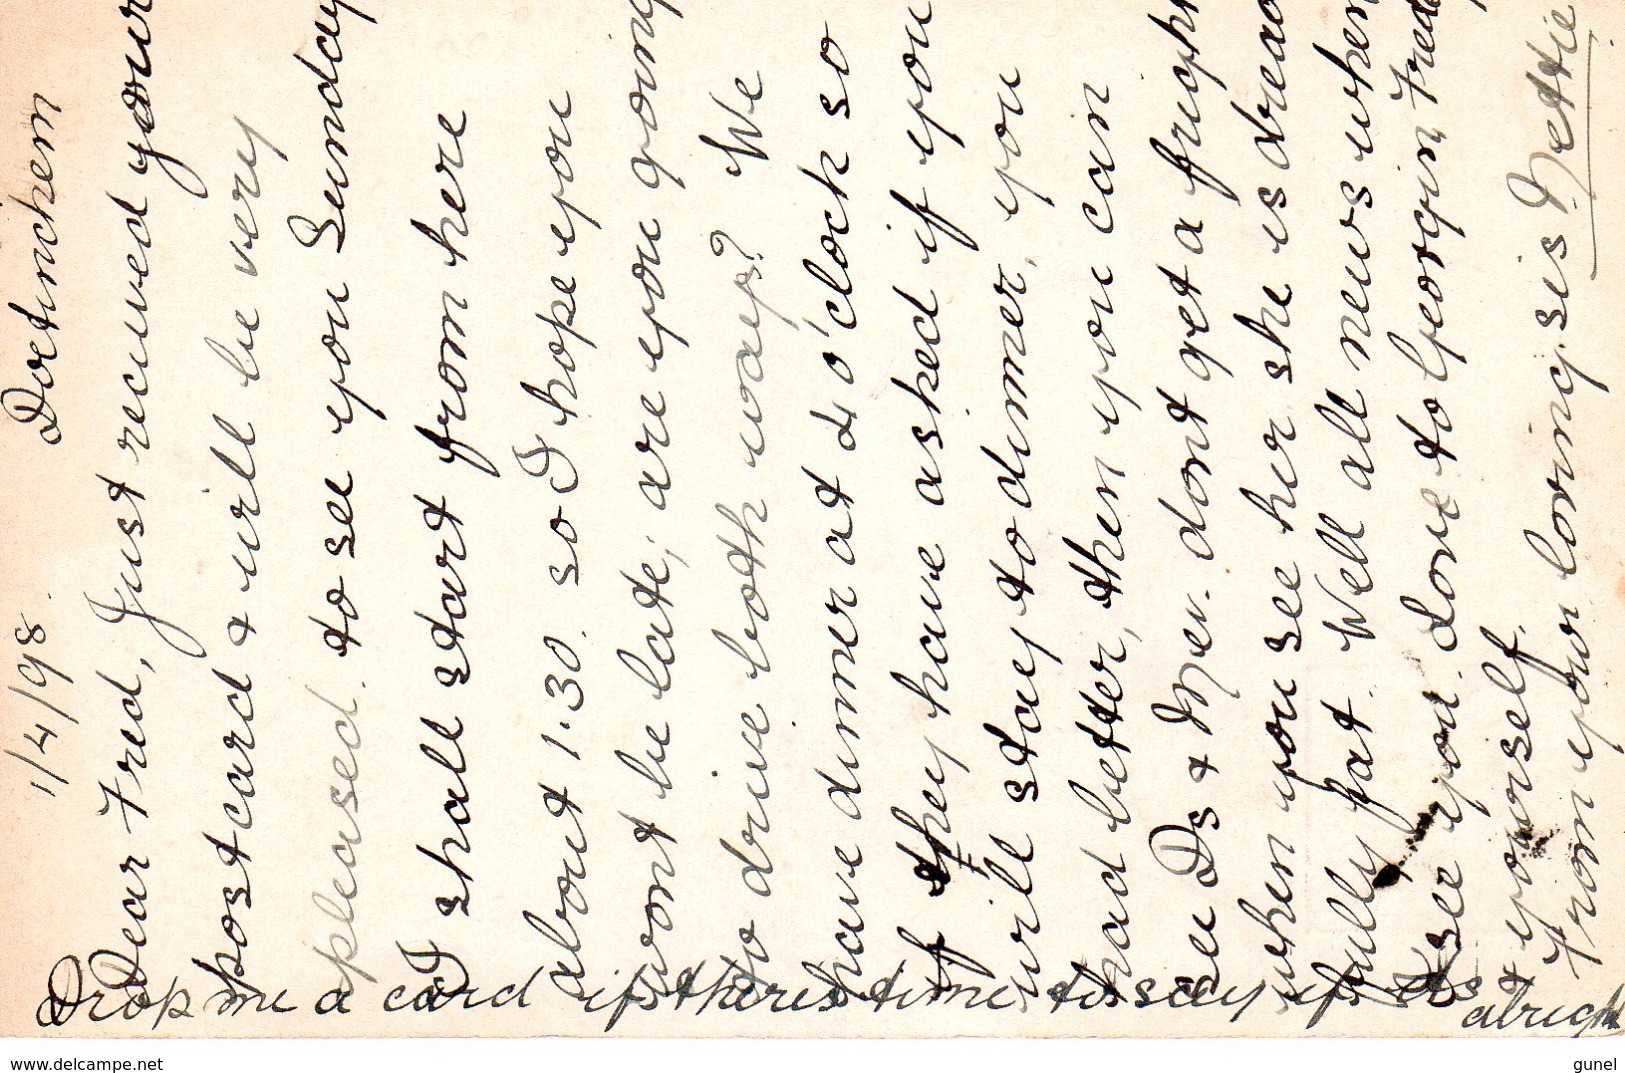 1/4/98. Doetinchem
Dear Fred, Just recieved your
post card & will be very
pleased to see you Sunday
I shall start from here
about 1.30. so I hope you
wont be late; are you going
to drive both ways? We
have dinner at 4 o'clock so
if they have asked if you
will stay to dinner, you
had better, then you can
see Ds & Mev. dont get a fright
when you see her she is dread
fully fat. Well all news when
I see you. Love to Georgin, Fred
& yourself.
From your loving sis Nettie
Drop me a card if theres time to say if its alright
www.delcampe.net
gunel